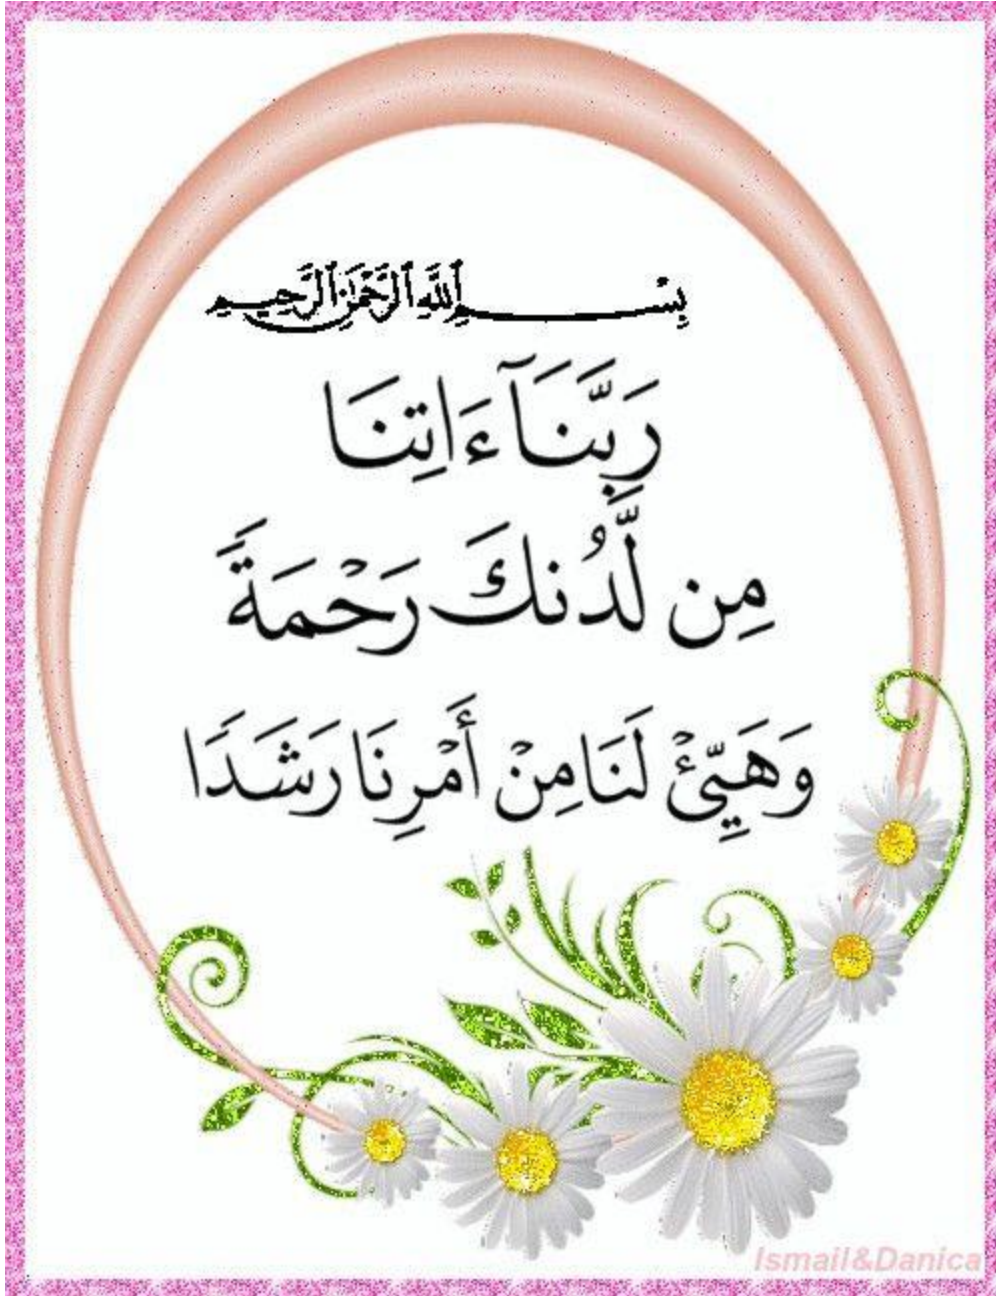 بِسْمِ اللَّهِ الرَّحْمَٰنِ الرَّحِيمِ
رَبَّنَآ ءَاتِنَا
مِن لَّدُنكَ رَحْمَةً
وَهَيِّئْ لَنَا مِنْ أَمْرِنَا رَشَدًا
Ismail&Danica